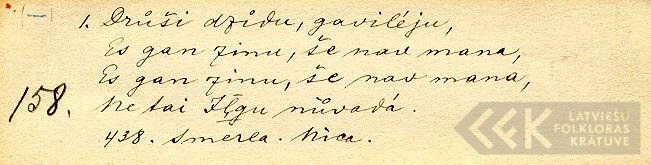 1. Drůši dzīdu, gavilēju,
Es gan zinu, še nav mana,
Es gan zinu, še nav mana,
158. Ne tai Iļgu nůvadā.
438. Smerla. Nica.
LATVIEŠU
FOLKLORAS
KRĀTUVE